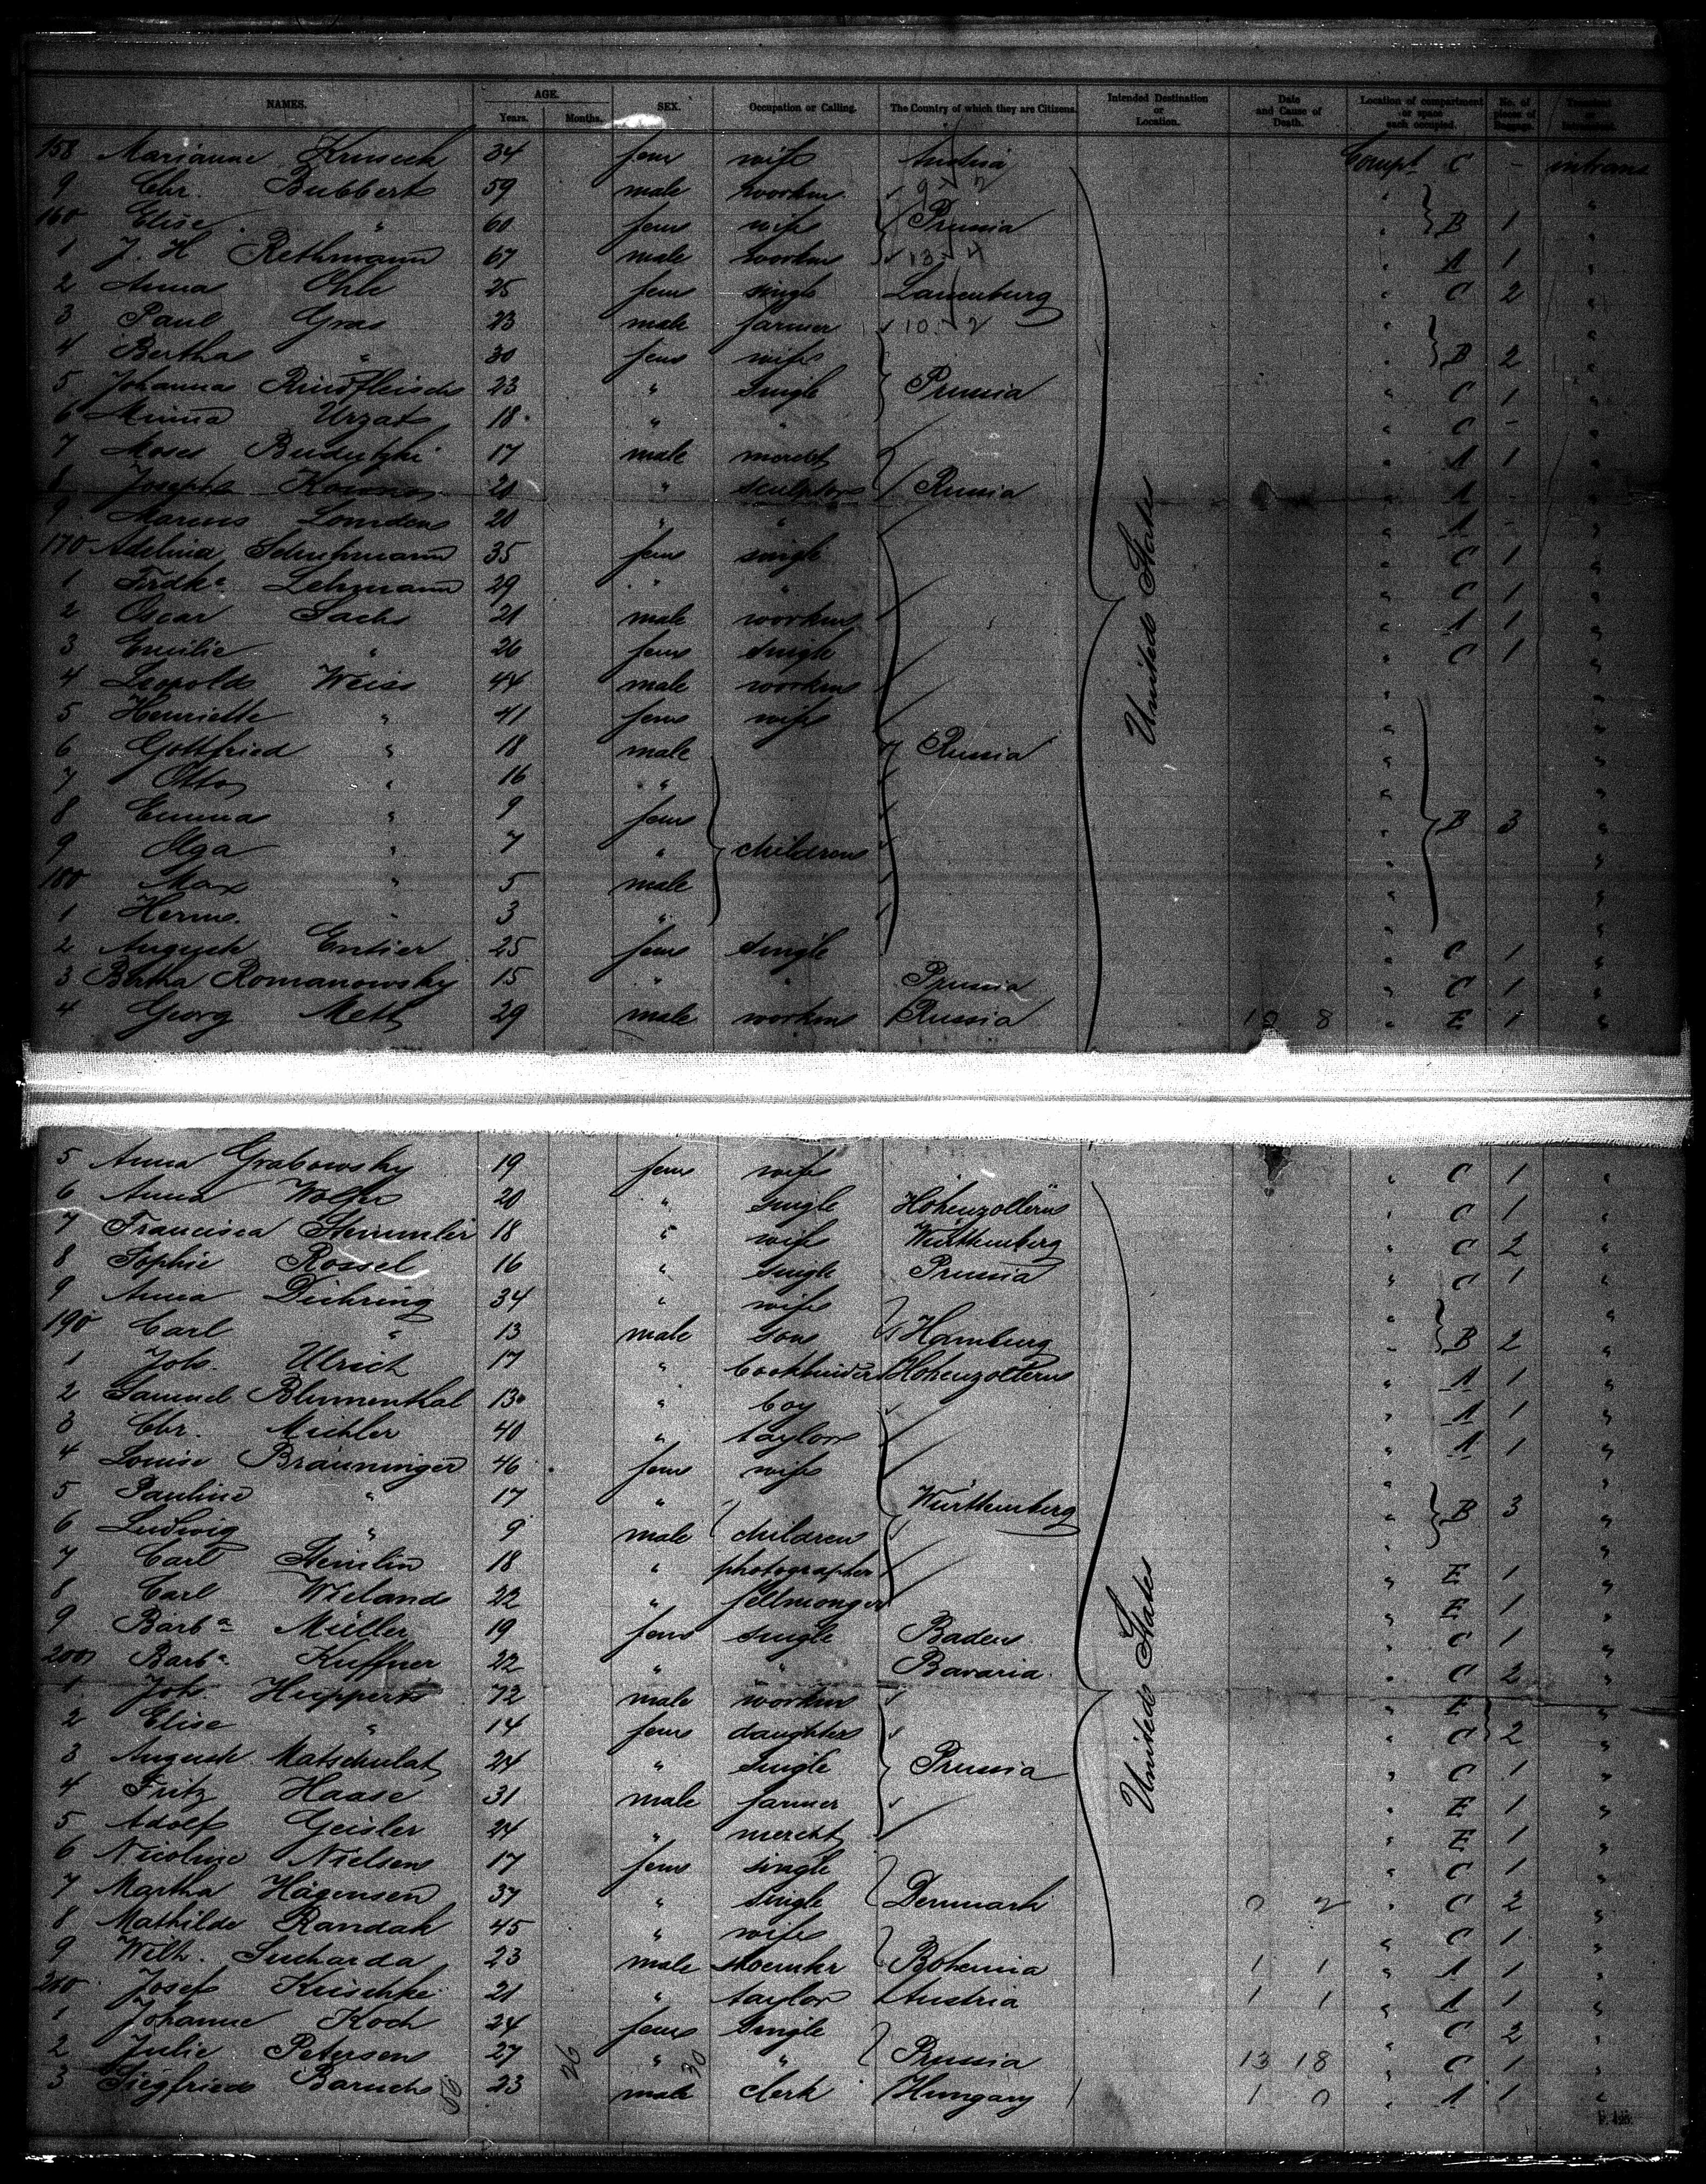 NAMES. AGE. Years. Months. SEX. Occupation or Calling. The Country of which they are Citizens. Intended Destination or Location. Date and Cause of Death. Location of compartment or space each occupied. No. of pieces of Baggage.
158 Marianne 34 fem wife Austria Compt C -
9 Chr. Bubbert 59 male workm "
160 Elise " 60 fem wife Prussia " B 1 "
1 J. H Rethmann 67 male workm " A 1 "
2 Anna Ohle 25 fem single Lauenburg " C 2 "
3 Paul Gras 23 male farmer "
4 Bertha " 30 fem wife " B 2 "
5 Johanna Rindfleisch 23 " single Prussia " C 1 "
6 Minna Urzat 18 " " " C - "
7 Moses 17 male " A 1 "
8 Joseph 21 " sculptor Russia " A - "
9 Marcus 20 " " " A - "
170 Adelina Schuhmann 35 fem single " C 1 "
1 Lehmann 29 " " " C 1 "
2 Oscar Sachs 21 male workm " A 1 "
3 Emilie " 26 fem single " C 1 "
4 Leopold Weiss 44 male workm "
5 Henriette " 41 fem wife "
6 Gottfried " 18 male Russia "
7 Otto " 16 "
8 Emma " 9 fem " B 3 "
9 Olga " 7 " children "
180 Max " 5 male "
1 Herm. " 3 " "
2 Auguste 25 fem single " C 1 "
3 Bertha Romanowsky 15 " " Prussia " C 1 "
4 Georg Mett 29 male workm Russia 10 8 " E 1 "
United States
5 Anna Grabowsky 19 fem wife " C 1 "
6 Anna 20 " single Hohenzollern " C 1 "
7 Francisca 18 " wife Württemberg " C 2 "
8 Sophie Rossel 16 " single Prussia " C 1 "
9 Anna Diehring 34 " wife "
190 Carl " 13 male son Hamburg B 2 "
1 Joh. Ulrich 17 " bookbinder Hohenzollern " A 1 "
2 Samuel Blumenthal 13 " boy " A 1 "
3 Chr. Michler 40 " taylor " A 1 "
4 Louise Bräuninger 46 fem wife "
5 Pauline " 17 " Württemberg " B 3 "
6 Ludwig " 9 male children "
7 Carl 18 " photographer " E 1 "
8 Carl Wieland 22 " fellmonger " E 1 "
9 Barba Müller 19 fem single Baden " C 1 "
200 Barba Kuffner 22 " " Bavaria " C 2 "
1 Joh. Huppertz 72 male workm " E
2 Elise " 14 fem daughter " C 2 "
3 Auguste Matschulat 24 " single Prussia " C 1 "
4 Fritz Haase 31 male farmer " E 1 "
5 Adolf Geisler 24 " mercht " E 1 "
6 Nicoline Nielsen 17 fem single " C 1 "
7 Martha Hagensen 37 " single Denmark 0 2 " C 2 "
8 Mathilde Randak 45 " wife " C 1 "
9 Wilh. Sucharda 23 male shoemkr Bohemia 1 1 " A 1 "
210 Josef 21 " taylor Austria 1 1 " A 1 "
1 Johanne Koch 24 fem single " C 2 "
2 Julie Petersen 27 " " Prussia 13 18 " C 1 "
3 Siegfried Baruch 23 male clerk Hungary 1 0 " A 1 "
United States
26 30